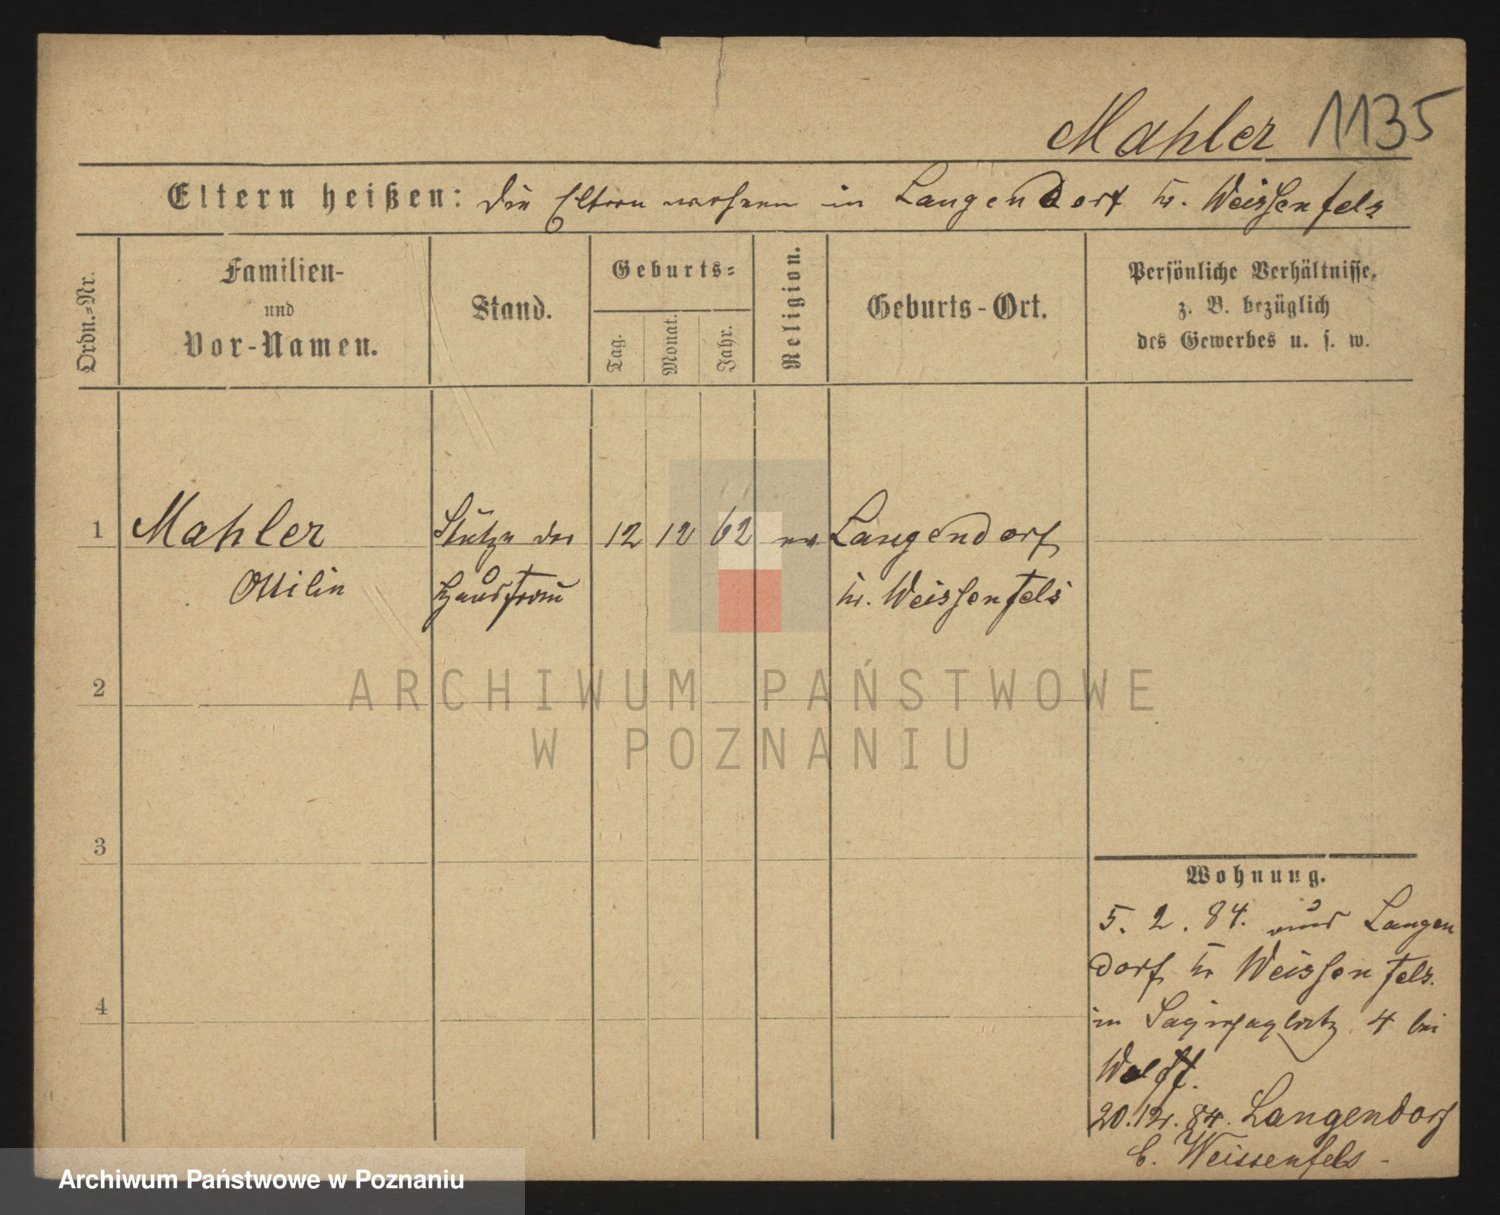 Mahler 1135
Eltern heißen: die Eltern wohnen in Langendorf Kr. Weissenfels
Ordn.-Nr.
Familien-
und
Vor-Namen.
Stand.
Geburts-
Tag.
Monat.
Jahr.
Religion.
Geburts-Ort.
Persönliche Verhältnisse,
z. B. bezüglich
des Gewerbes u. s. w.
1 Mahler Stütze der 12 12 62 ev Langendorf
Ottilie Hausfrau Kr. Weissenfels
2
3
4
Wohnung.
5. 2. 84. aus Langen
dorf Kr Weissenfels.
in 4 bei
Wolff.
20.12.84. Langendorf
b. Weissenfels -
ARCHIWUM PAŃSTWOWE
W POZNANIU
Archiwum Państwowe w Poznaniu